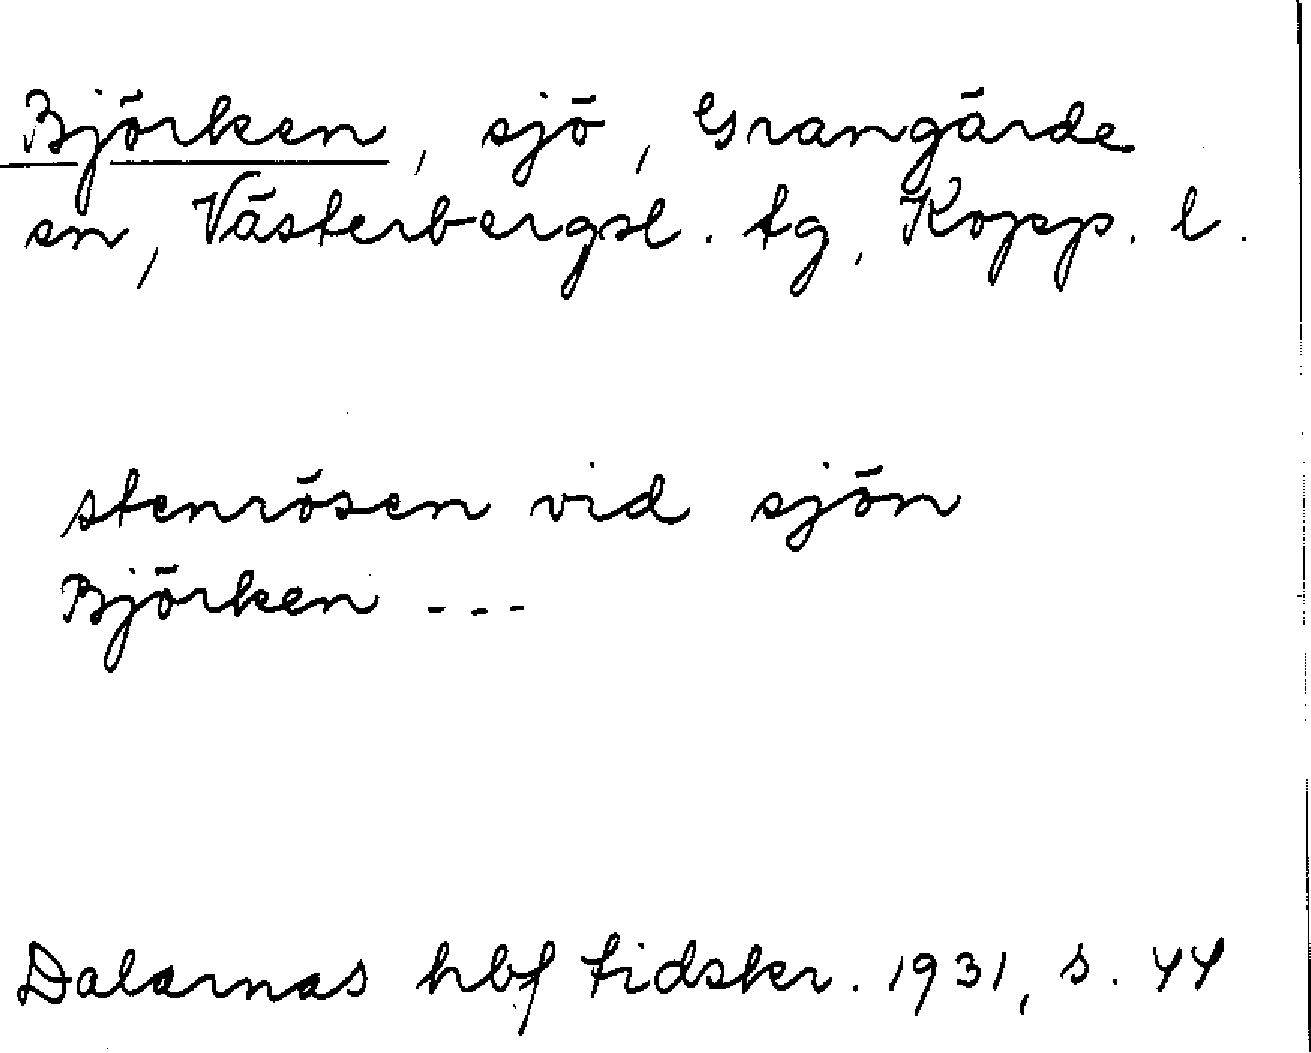 Björken, sjö, Grangärde
sn, Västerbergsl. tg, Kopp. l.
stenrösen vid sjön
Björken ---
Dalarnas hbf tidskr. 1931, s. 44